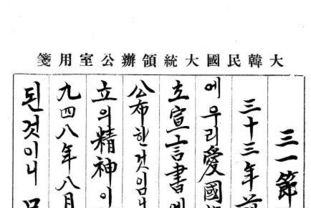 大韓民國大統領辦公室用箋
三一節
三十三年前
에 우리愛國
立宣言書에
公布한것임
立의精神이
九四八年八月
된것이니